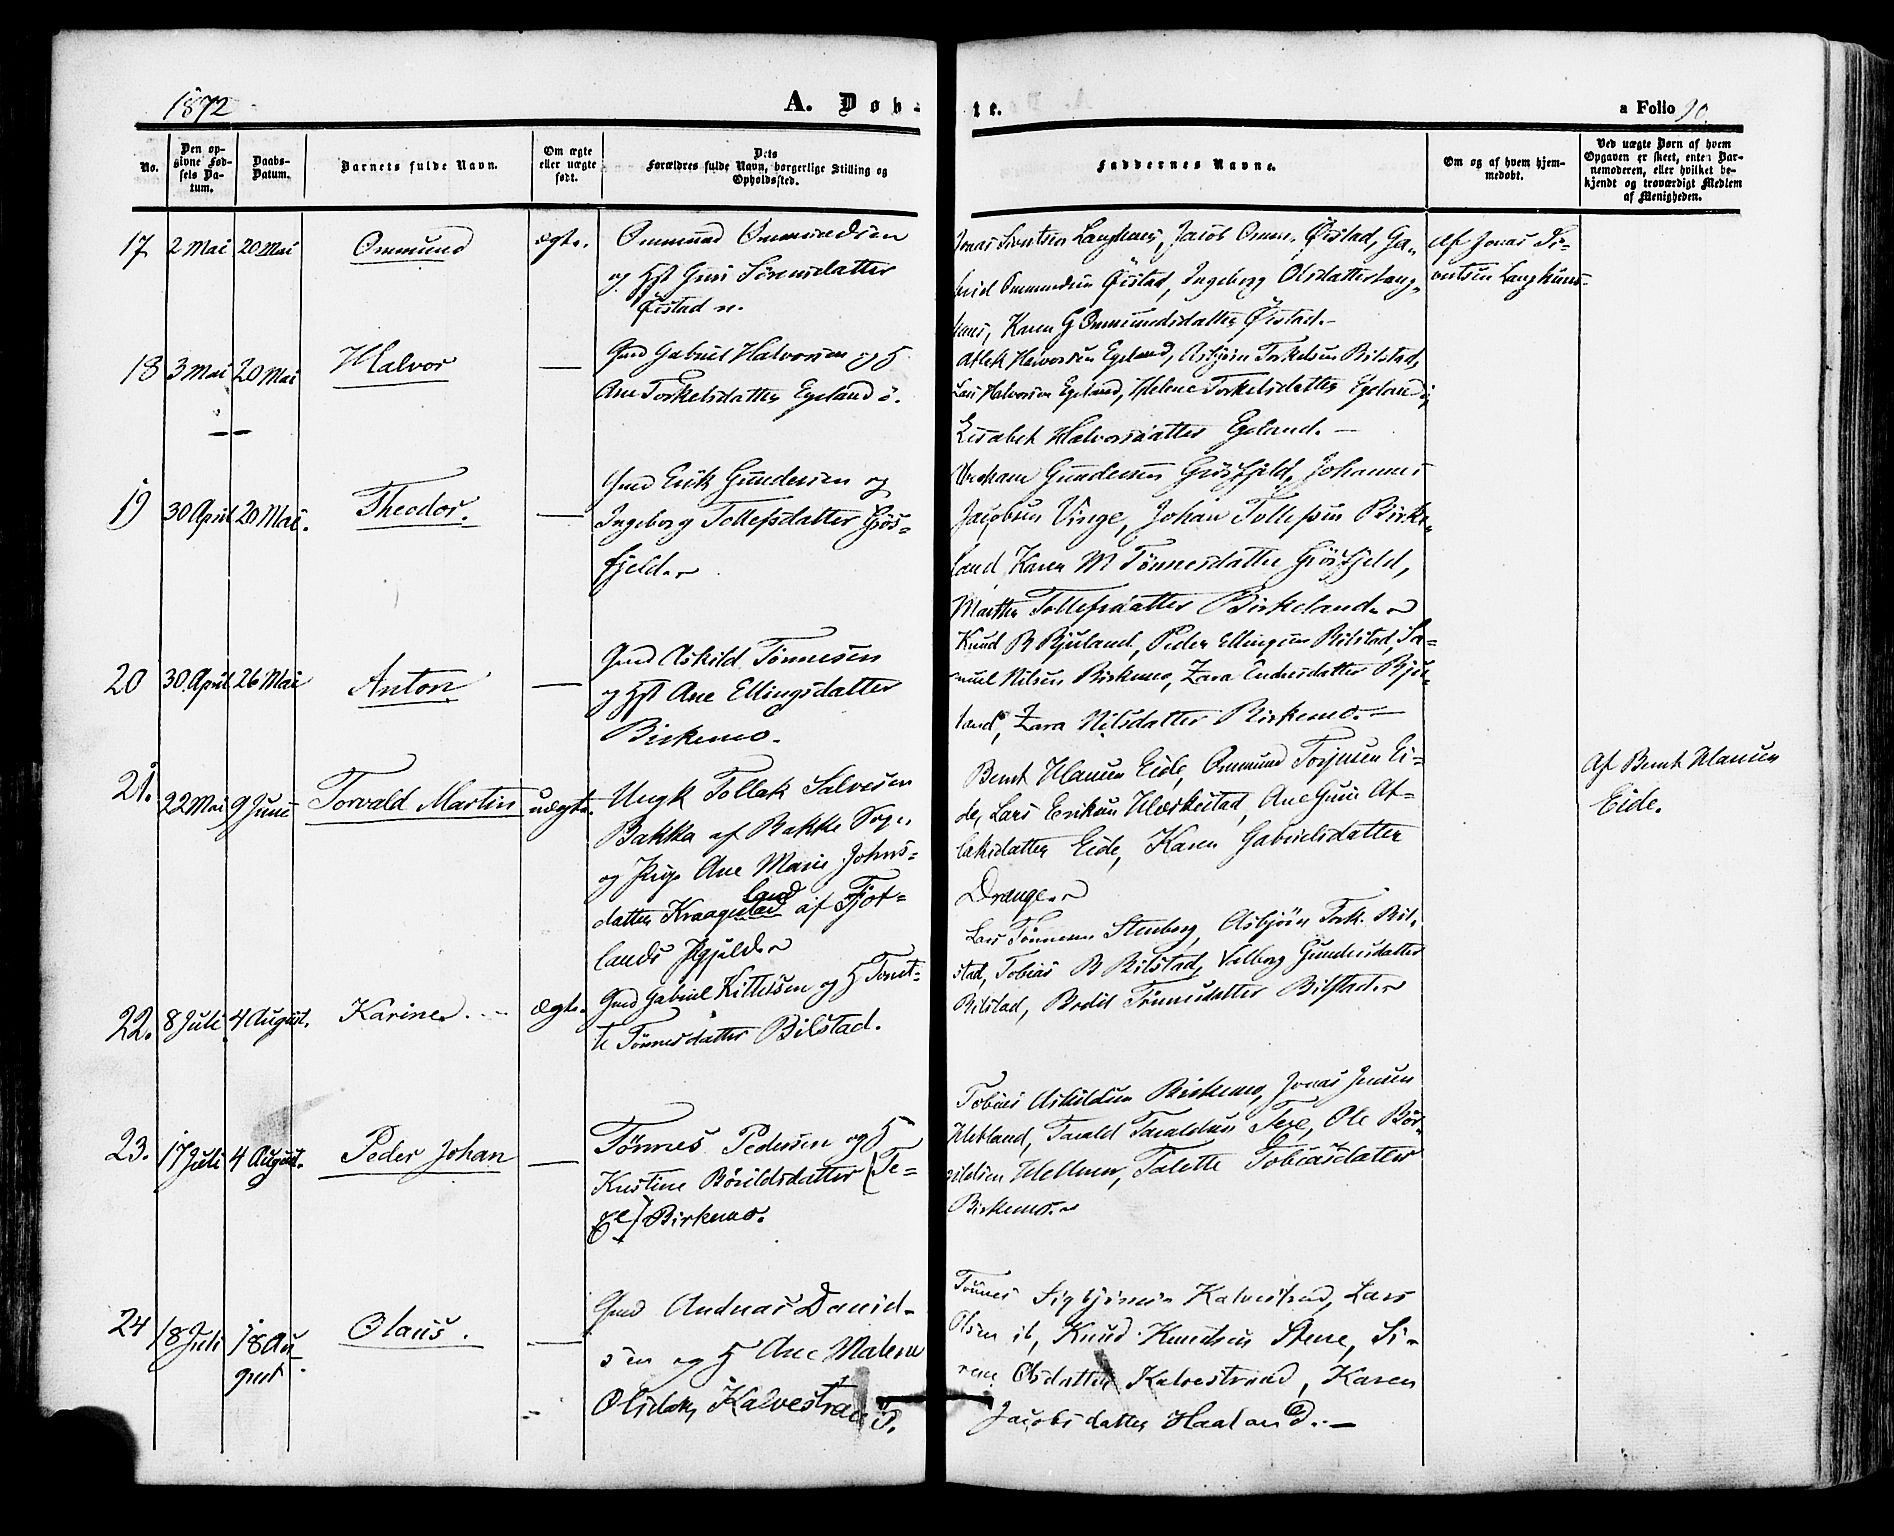 1872
A. Døb-
te.
a Folio 90.
No.
Den op-
givne Fød-
sels Da-
tum.
Daabs-
Datum.
Barnets fulde Navn.
Om ægte
eller uægte
født.
Dets
Forældres fulde Navn, borgerlige Stilling og
Opholdssted.
Faddernes Navne.
Om og af hvem hjem-
medøbt.
Ved uægte Børn af hvem
Opgaven er skeet, enten Bar-
nemoderen, eller hvilket be-
kjendt og troværdigt Medlem
af Menigheden.
17 2 Mai 20 Mai Ommund ægte. Ommund Ommundsen
og Hst Guri Sørensdatter
Øistad n.
Jonas Sivertsen Langhuus, Jacob Omm. Øistad, Ga-
briel Ommundsen Øistad, Ingeborg Olsdatter Lang-
huus, Karen G Ommundsdatter Øistad.
Af Jonas Si-
vertsen Langhuus.
18 3 Mai 20 Mai Halvor — Gmd Gabriel Halvorsen og H
Ane Torkelsdatter Egeland ø.
Atlek Halvorsen Egeland, Asbjørn Torkelsen Bilstad,
Lars Halvorsen Egeland, Helene Torkelsdatter Egeland,
Lisabet Halvorsdatter Egeland. —
19 30 April 20 Mai. Theodor. — Gmd Erik Gundersen og
Ingeborg Tollefsdatter Grøs-
fjeld.
Abraham Gundersen Grøsfjeld, Johannes
Jacobsen Vinge, Johan Tollefsen Birke-
land, Karen M Tønnesdatter Grøsfjeld,
Marthe Tollefsdatter Birkeland.
20 30 April 26 Mai Anton — Gmd Askild Tønnesen
og Hst Ane Ellingsdatter
Birkemo.
Knud B Bjuland, Peder Ellingsen Bilstad, Sa-
muel Nilsen Birkemo, Zara Endresdatter Bju-
land, Zara Nilsdatter Birkemo. —
21. 22 Mai 9 Juni Torvald Martin uægte. Ungk Tollak Salvesen
Bakka af Bakke Sogn
og Pige Ane Marie Johns-
datter Kraagestad land af Fjot-
lands Pgjeld.
Bernt Hansen Eide, Ommund Torjusen Ei-
de, Lars Eriksen Hæskestad, Ane Guri At-
laksdatter Eide, Karen Gabrielsdatter
Drange.
Af Bernt Hansen
Eide.
22. 8 Juli 4 August. Karine. ægte. Gmd Gabriel Kittelsen og H Tonet-
te Tønnesdatter Bilstad.
Lars Tønnesen Stenberg, Asbjørn Tork. Bil-
stad, Tobias B Bilstad, Valborg Gundersdatter
Bilstad, Bredit Tønnesdatter Bilstad.
23. 17 Juli 4 August. Peder Johan — Tønnes Pedersen og H
Kristine Børildsdatter (Te-
xe) Birkemo.
Tobias Askildsen Birkemo, Jonas Jensen
Hekland, Tarald Taraldsen Texe, Ole Bør-
ildsen Helleren, Talette Tobiasdatter
Birkemo.
24 18 Juli 18 Au
gust. Olaus. — Gmd Andreas David-
sen og H Ane Malene
Olsdatter Kalvestrand.
Tønnes Sigbjørnsen Kalvestrand, Lars
Olsen ib, Knud Knudsen Stene, Si-
rene Olsdatter Kalvestrand, Karen
Jacobsdatter Haaland. —